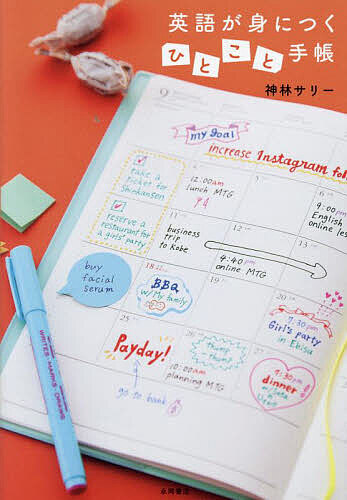 英語が身につく
ひとこと手帳
神林サリー
my goal
increase Instagram fol
take a
ticket for
Shinkansen
reserve a
restaurant for
a girls' party
buy
facial
serum
2
12:00am
lunch MTG
5
6
9:00pm
English
online les
11
business
trip
to Kobe
12
13
4:40pm
online MTG
18
BBQ
w/My family
19
20
7:30pm
Girl's party
in Ebisu
25
Payday!
go to bank
26
10:00am
planning MTG
27
dinner
WRITES MARKS DRAWS
永岡書店